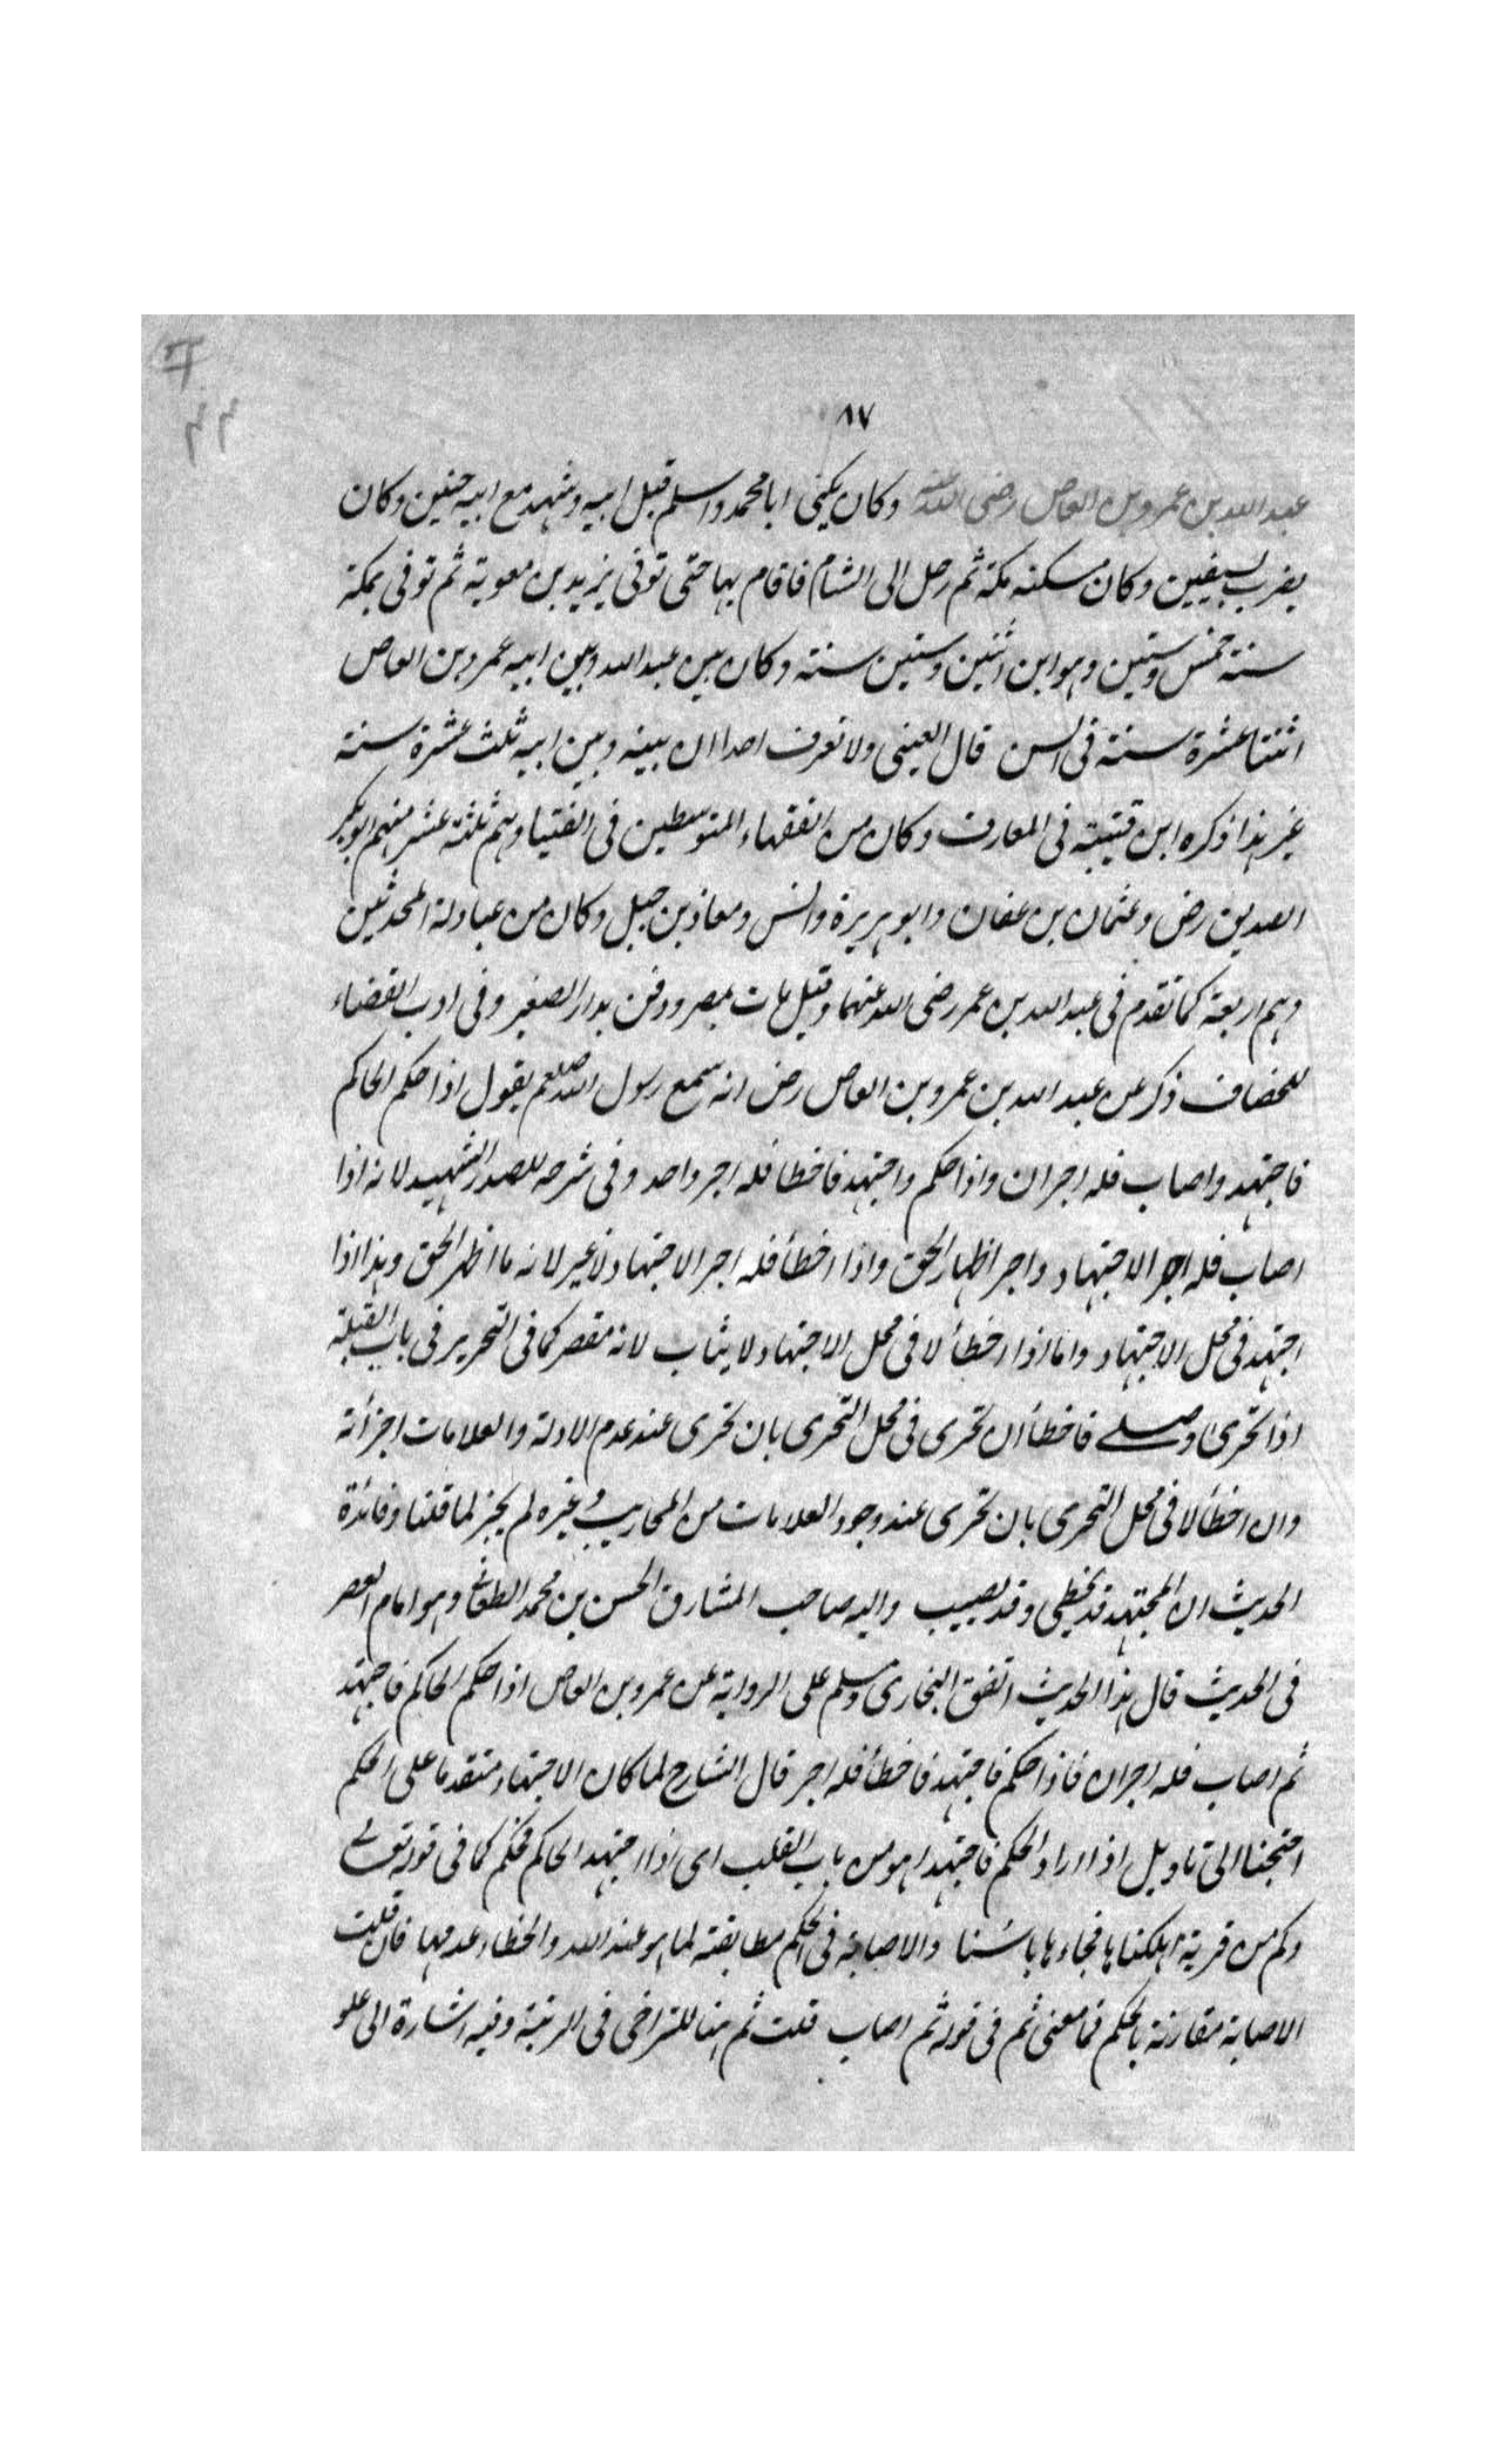 ٨٧
عبد الله بن عمرو بن العاص رضي الله عنه وكان يكنى ابا محمد واسلم قبل ابيه وشهد مع ابيه حنين وكان
يضرب بسيفين وكان مسكنه مكة ثم رحل الى الشام فاقام بها حتى توفى يزيد بن معوية ثم توفى بمكة
سنة خمس وستين وهو ابن اثنين وستين سنة وكان بين عبد الله وبين ابيه عمرو بن العاص
اثنتا عشرة سنة فى السن قال العينى ولا نعرف احدا ان بينه وبين ابيه ثلث عشرة سنة
غير هذا ذكره ابن قتيبة فى المعارف وكان من الفقهاء المتوسطين فى الفتيا وهم ثلثة عشر منهم ابو بكر
الصديق رض وعثمان بن عفان وابو هريرة وانس ومعاذ بن جبل وكان من عبادلة المحدثين
وهم اربعة كما تقدم فى عبد الله بن عمر رضى الله عنهما وقيل مات بمصر ودفن بدار الصغير وفى ادب القضاء
للخصاف ذكر عن عبد الله بن عمرو بن العاص رض انه سمع رسول الله صلعم يقول اذا حكم الحاكم
فاجتهد واصاب فله اجران واذا حكم واجتهد فاخطا فله اجر واحد وفى شرحه للصدر الشهيد لانه اذا
اصاب فله اجر الاجتهاد واجر اظهار الحق واذا اخطأ فله اجر الاجتهاد لا غير لانه ما اظهر الحق وهذا اذا
اجتهد فى محل الاجتهاد واما اذا اخطأ لا فى محل الاجتهاد لا يثاب لانه مقصر كما فى التحرير فى باب القبلة
اذا تحرى وصلے فاخطأ ان تحرى فى محل التحرى بان تحرى عند عدم الادلة والعلامات اجزأته
وان اخطأ لا فى محل التحرى بان تحرى عند وجود العلامات من المحاريب وغيره لم يجز لما قلنا وفائدة
الحديث ان المجتهد قد يخطى وقد يصيب واليه صاحب المشارق الحسن بن محمد وهو امام العصر
فى الحديث قال هذا الحديث اتفق البخارى ومسلم على الرواية عن عمرو بن العاص اذا حكم الحاكم فاجتهد
ثم اصاب فله اجران فاذا حكم فاجتهد فاخطأ فله اجر قال الشارح لما كان الاجتهاد متقدما على الحكم
احتجنا الى تاويل اذا اراد الحكم فاجتهد او هو من باب القلب اى اذا اجتهد الحاكم فحكم كما فى قوله تعالے
وكم من قرية اهلكناها فجاءها باسنا والاصابة فى الحكم مطابقته لما هو عند الله والخطاء عدمها فان قلت
الاصابة مقارنة بالحكم فما معنى ثم فى قوله ثم اصاب قلت ثم هنا للتراخى فى الرتبة وفيه اشارة الى علو